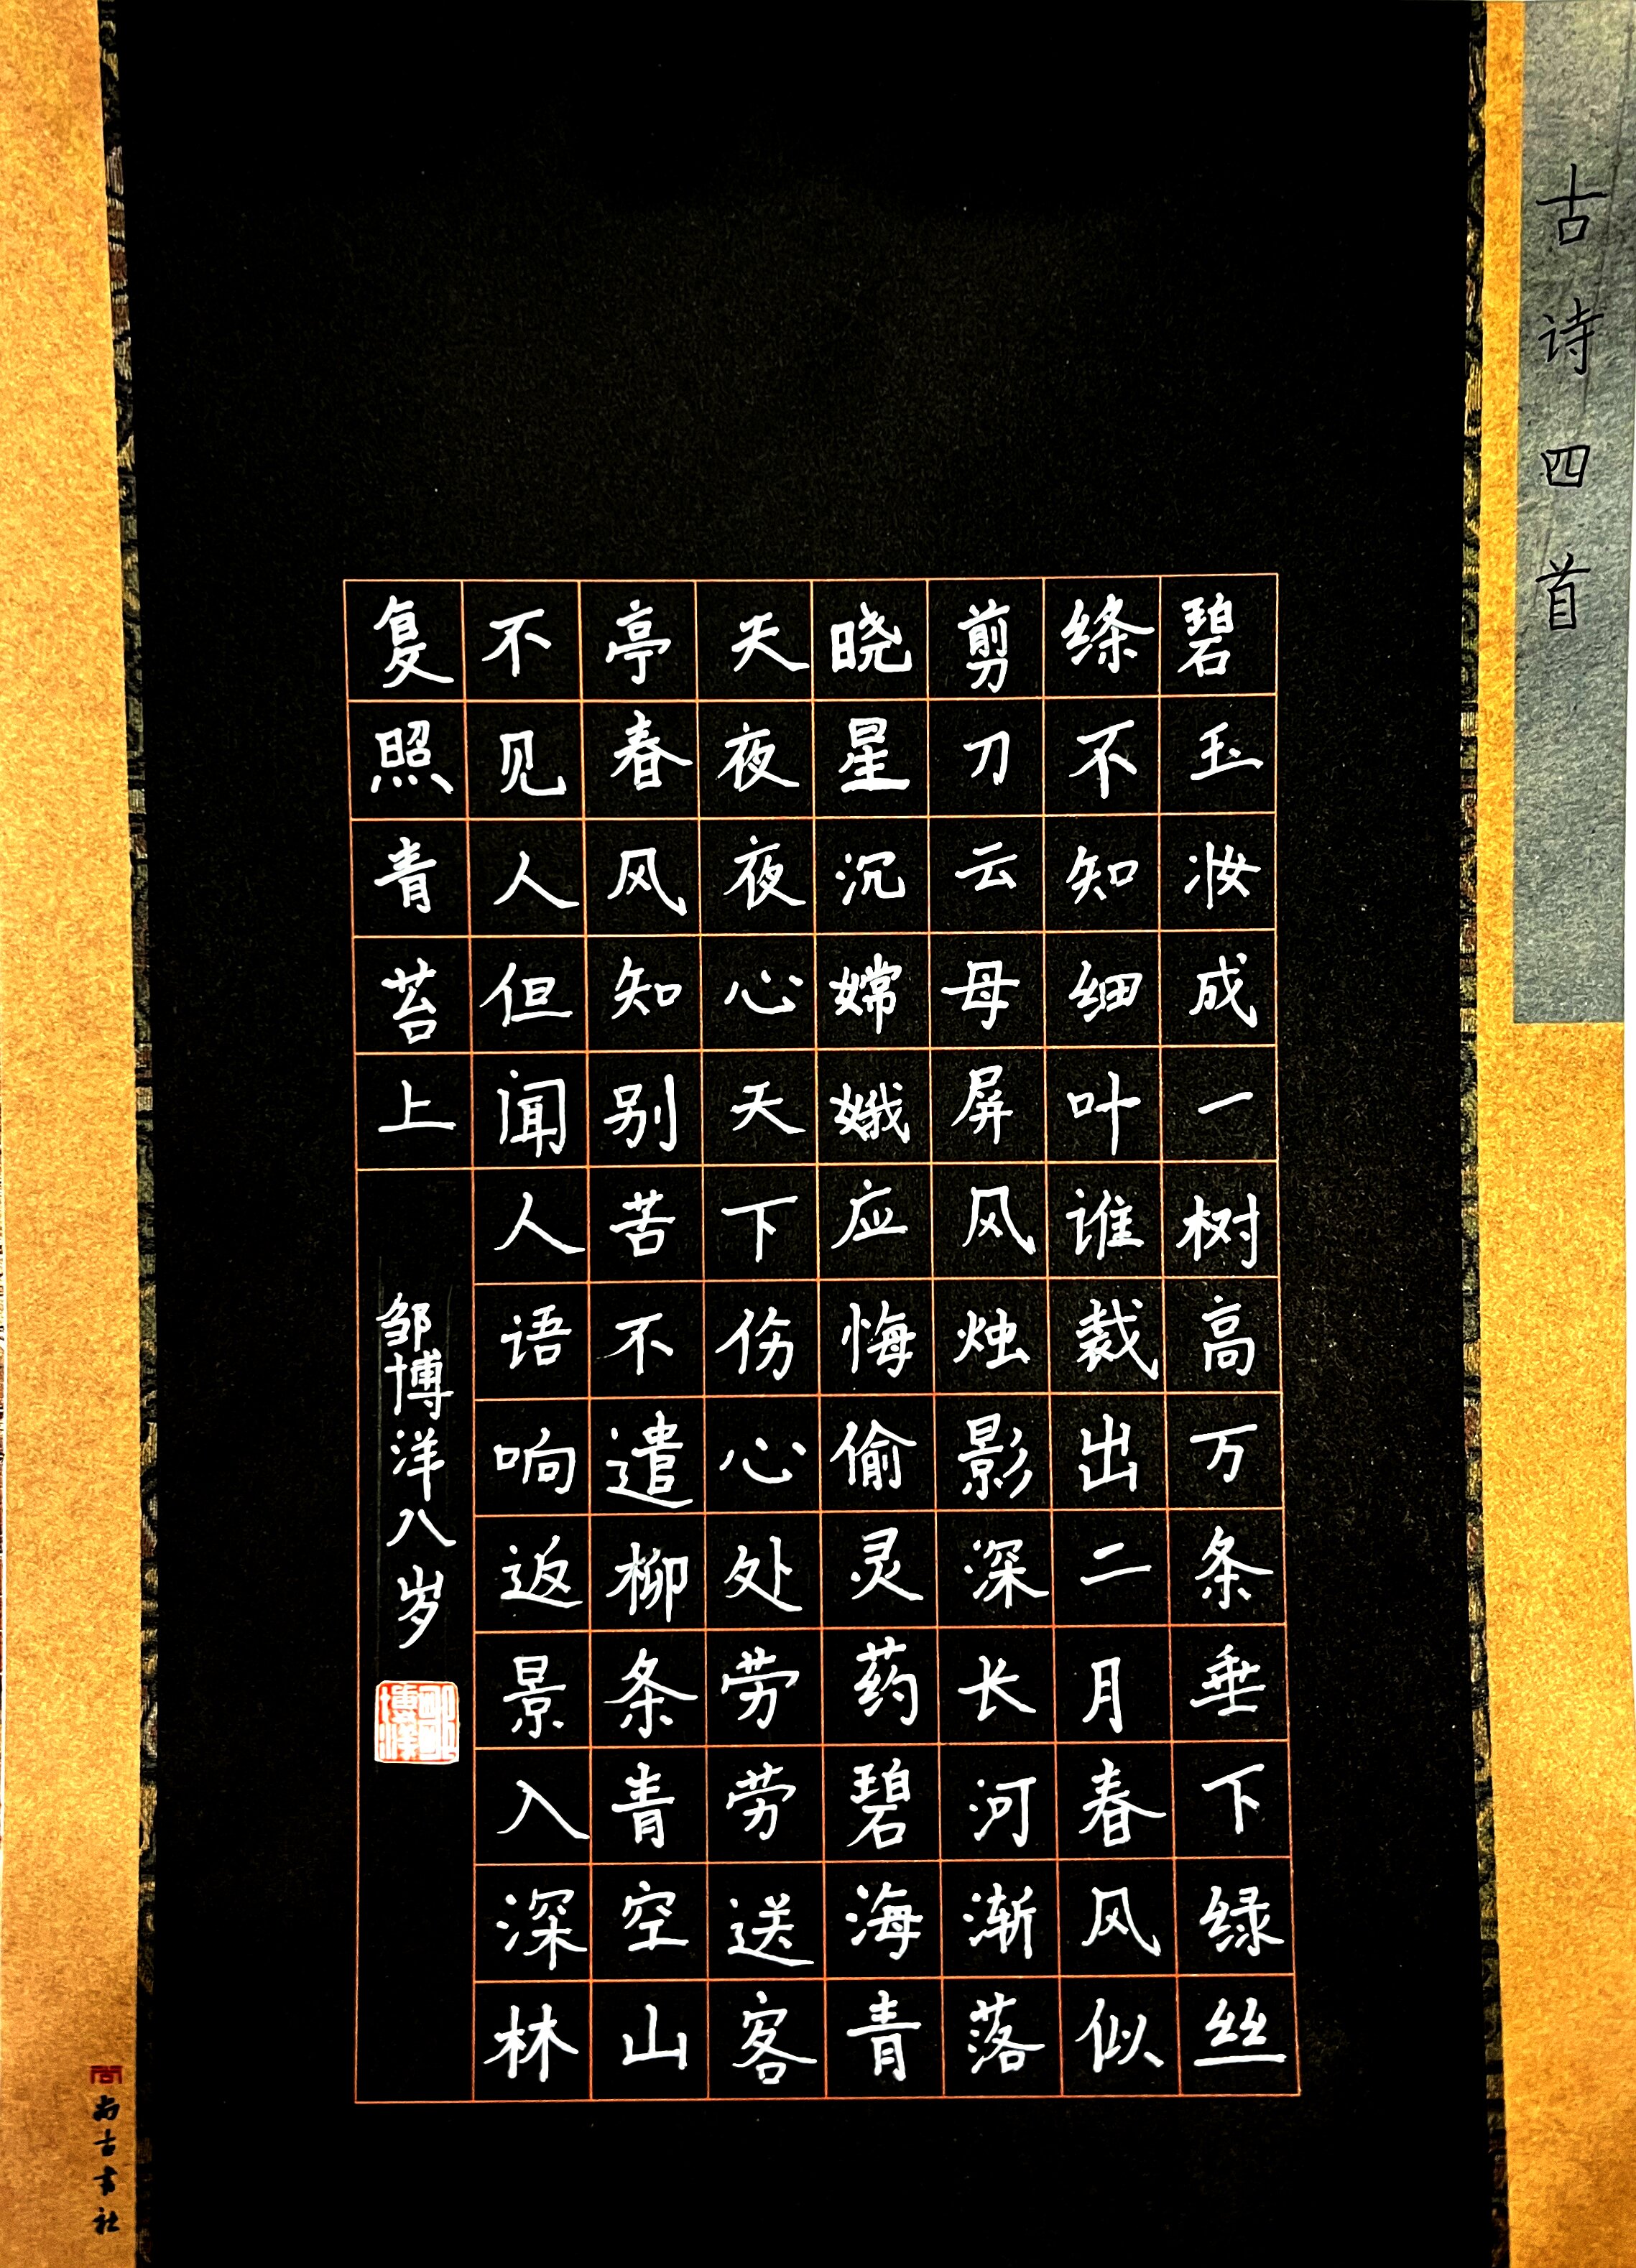 古诗四首
碧玉妆成一树高万条垂下绿丝
绦不知细叶谁裁出二月春风似
剪刀云母屏风烛影深长河渐落
晓星沉嫦娥应悔偷灵药碧海青
天夜夜心天下伤心处劳劳送客
亭春风知别苦不遣柳条青空山
不见人但闻人语响返景入深林
复照青苔上
邹博洋八岁
尚古书社